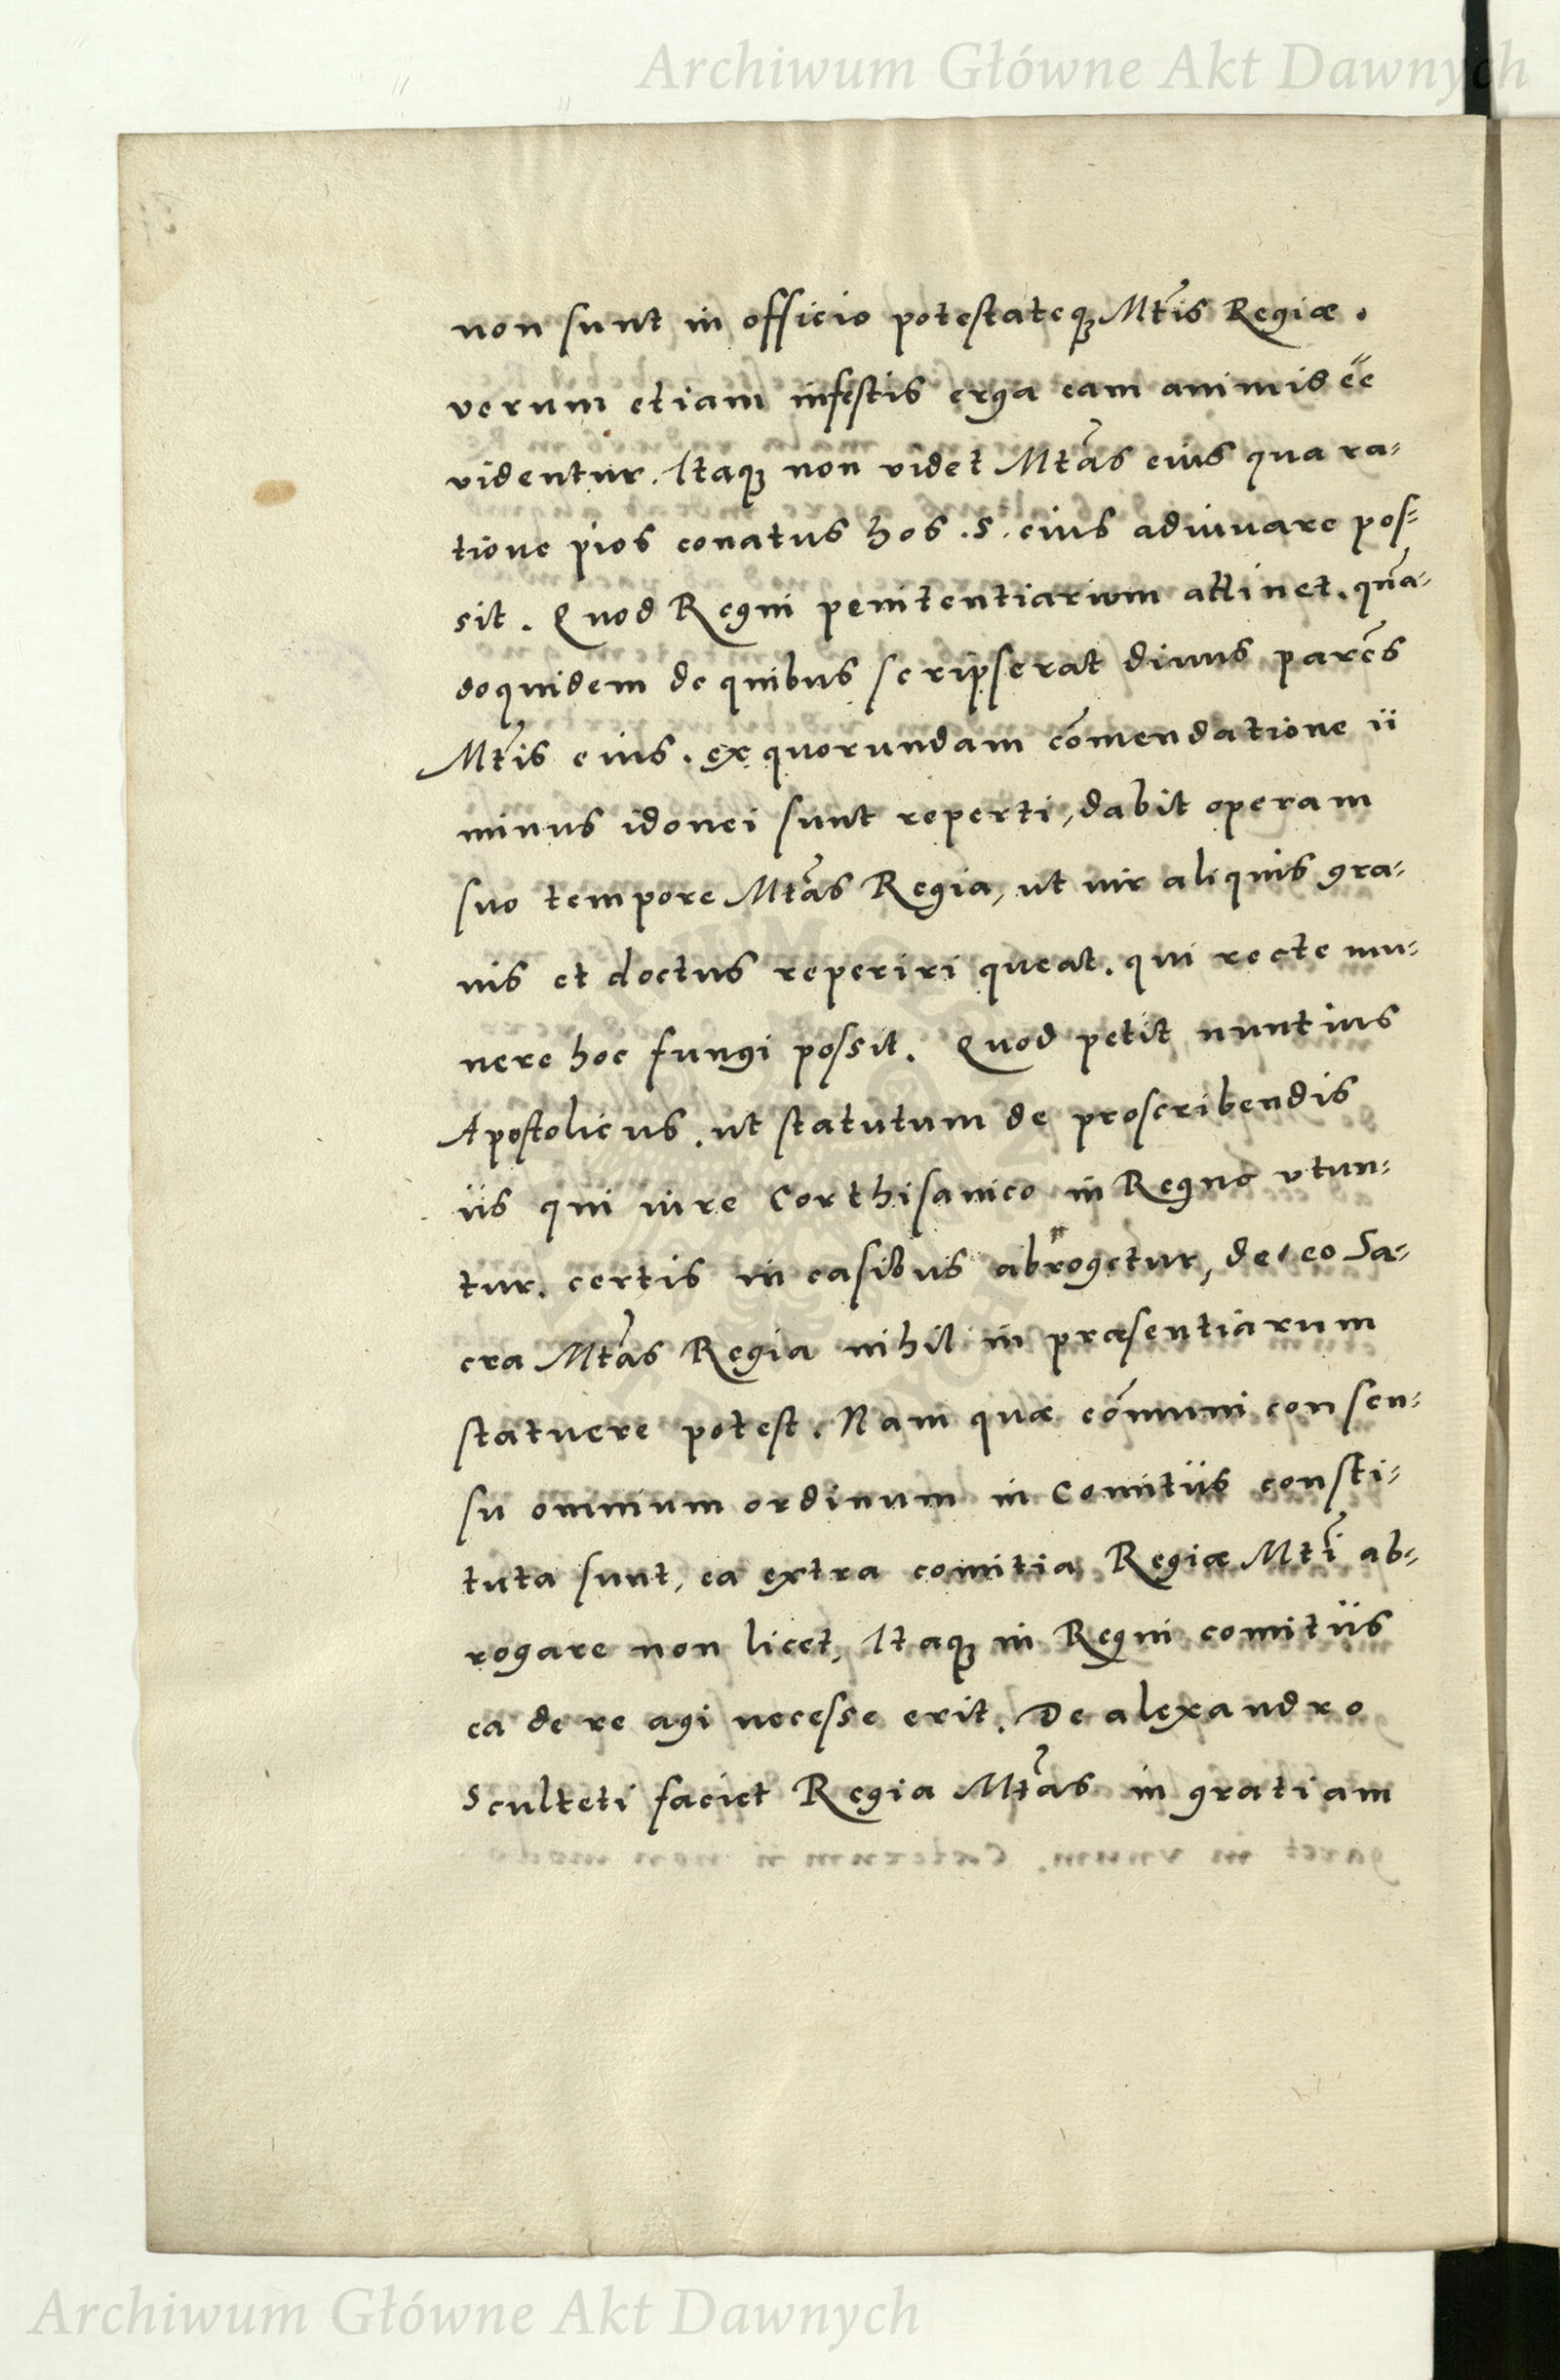 Archiwum Główne Akt Dawnych
non sunt in officio potestateq₃ Mtis Regiæ.
verum etiam infestis erga eam animis ēe
videntur. Itaq₃ non videt Mtãs eius qua ra-
tione pios conatus hos .S. eius adiuvare pos-
sit. Quod Regni penitentiarium attinet. qñā-
doquidem de quibus scripserat divus parēs
Mtis eius. ex quorundam cōmendatione ii
minus idonei sunt reperti, dabit operam
suo tempore Mtãs Regia, ut vir aliquis gra-
vis et doctus reperiri queat. qui recte mu-
nere hoc fungi possit. Quod petit nuntius
Apostolicus. ut statutum de proscribendis
iis qui iure Corthisanico in Regno utun-
tur. certis in casibus abrogetur, de eo Sa-
cra Mtãs Regia nihil in præsentiarum
statuere potest. Nam quæ cōmuni consen-
su omnium ordinum in Comitiis consti-
tuta sunt, ea extra comitia Regiæ Mti ab-
rogare non licet, Itaq₃ in Regni comitiis
ea de re agi necesse erit. De alexandro
Sculteti faciet Regia Mtãs in gratiam
Archiwum Główne Akt Dawnych